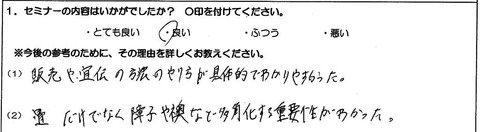 1．セミナーの内容はいかがでしたか？　〇印を付けてください。
・とても良い　・良い　・ふつう　・悪い
※今後の参考のために、その理由を詳しくお教えください。
(1) 販売や宣伝の方法のやり方が具体的でわかりやすかった。
(2) 畳だけでなく障子や襖などで多角化する重要性がわかった。